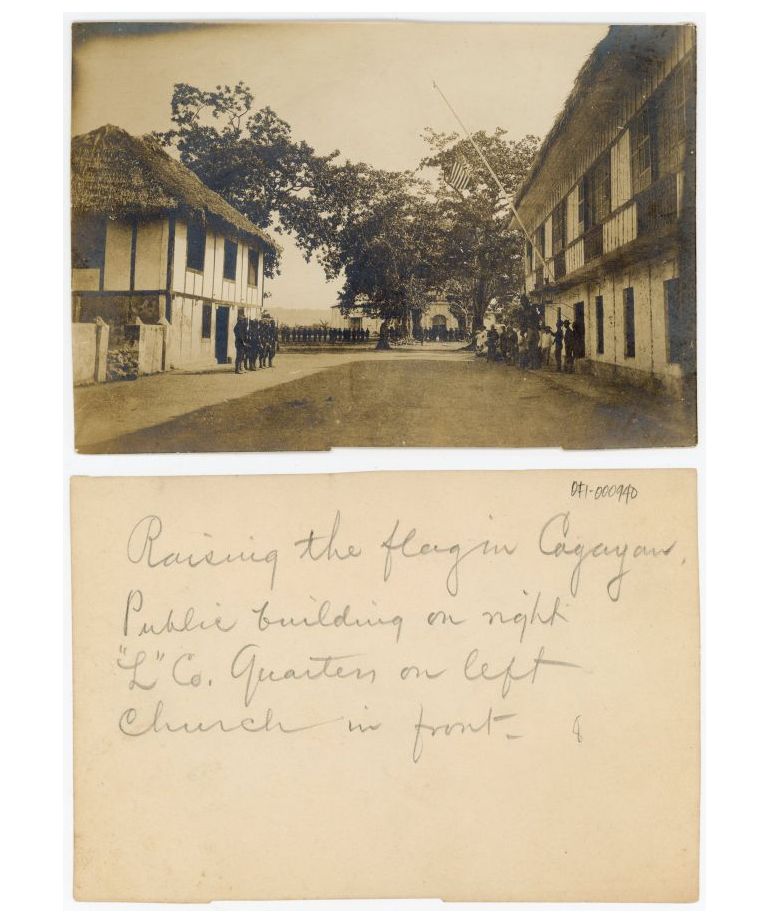 DF1-000940
Raising the flag in Cagayan.
Public building on right
"L" Co. Quarters on left
Church in front-
8